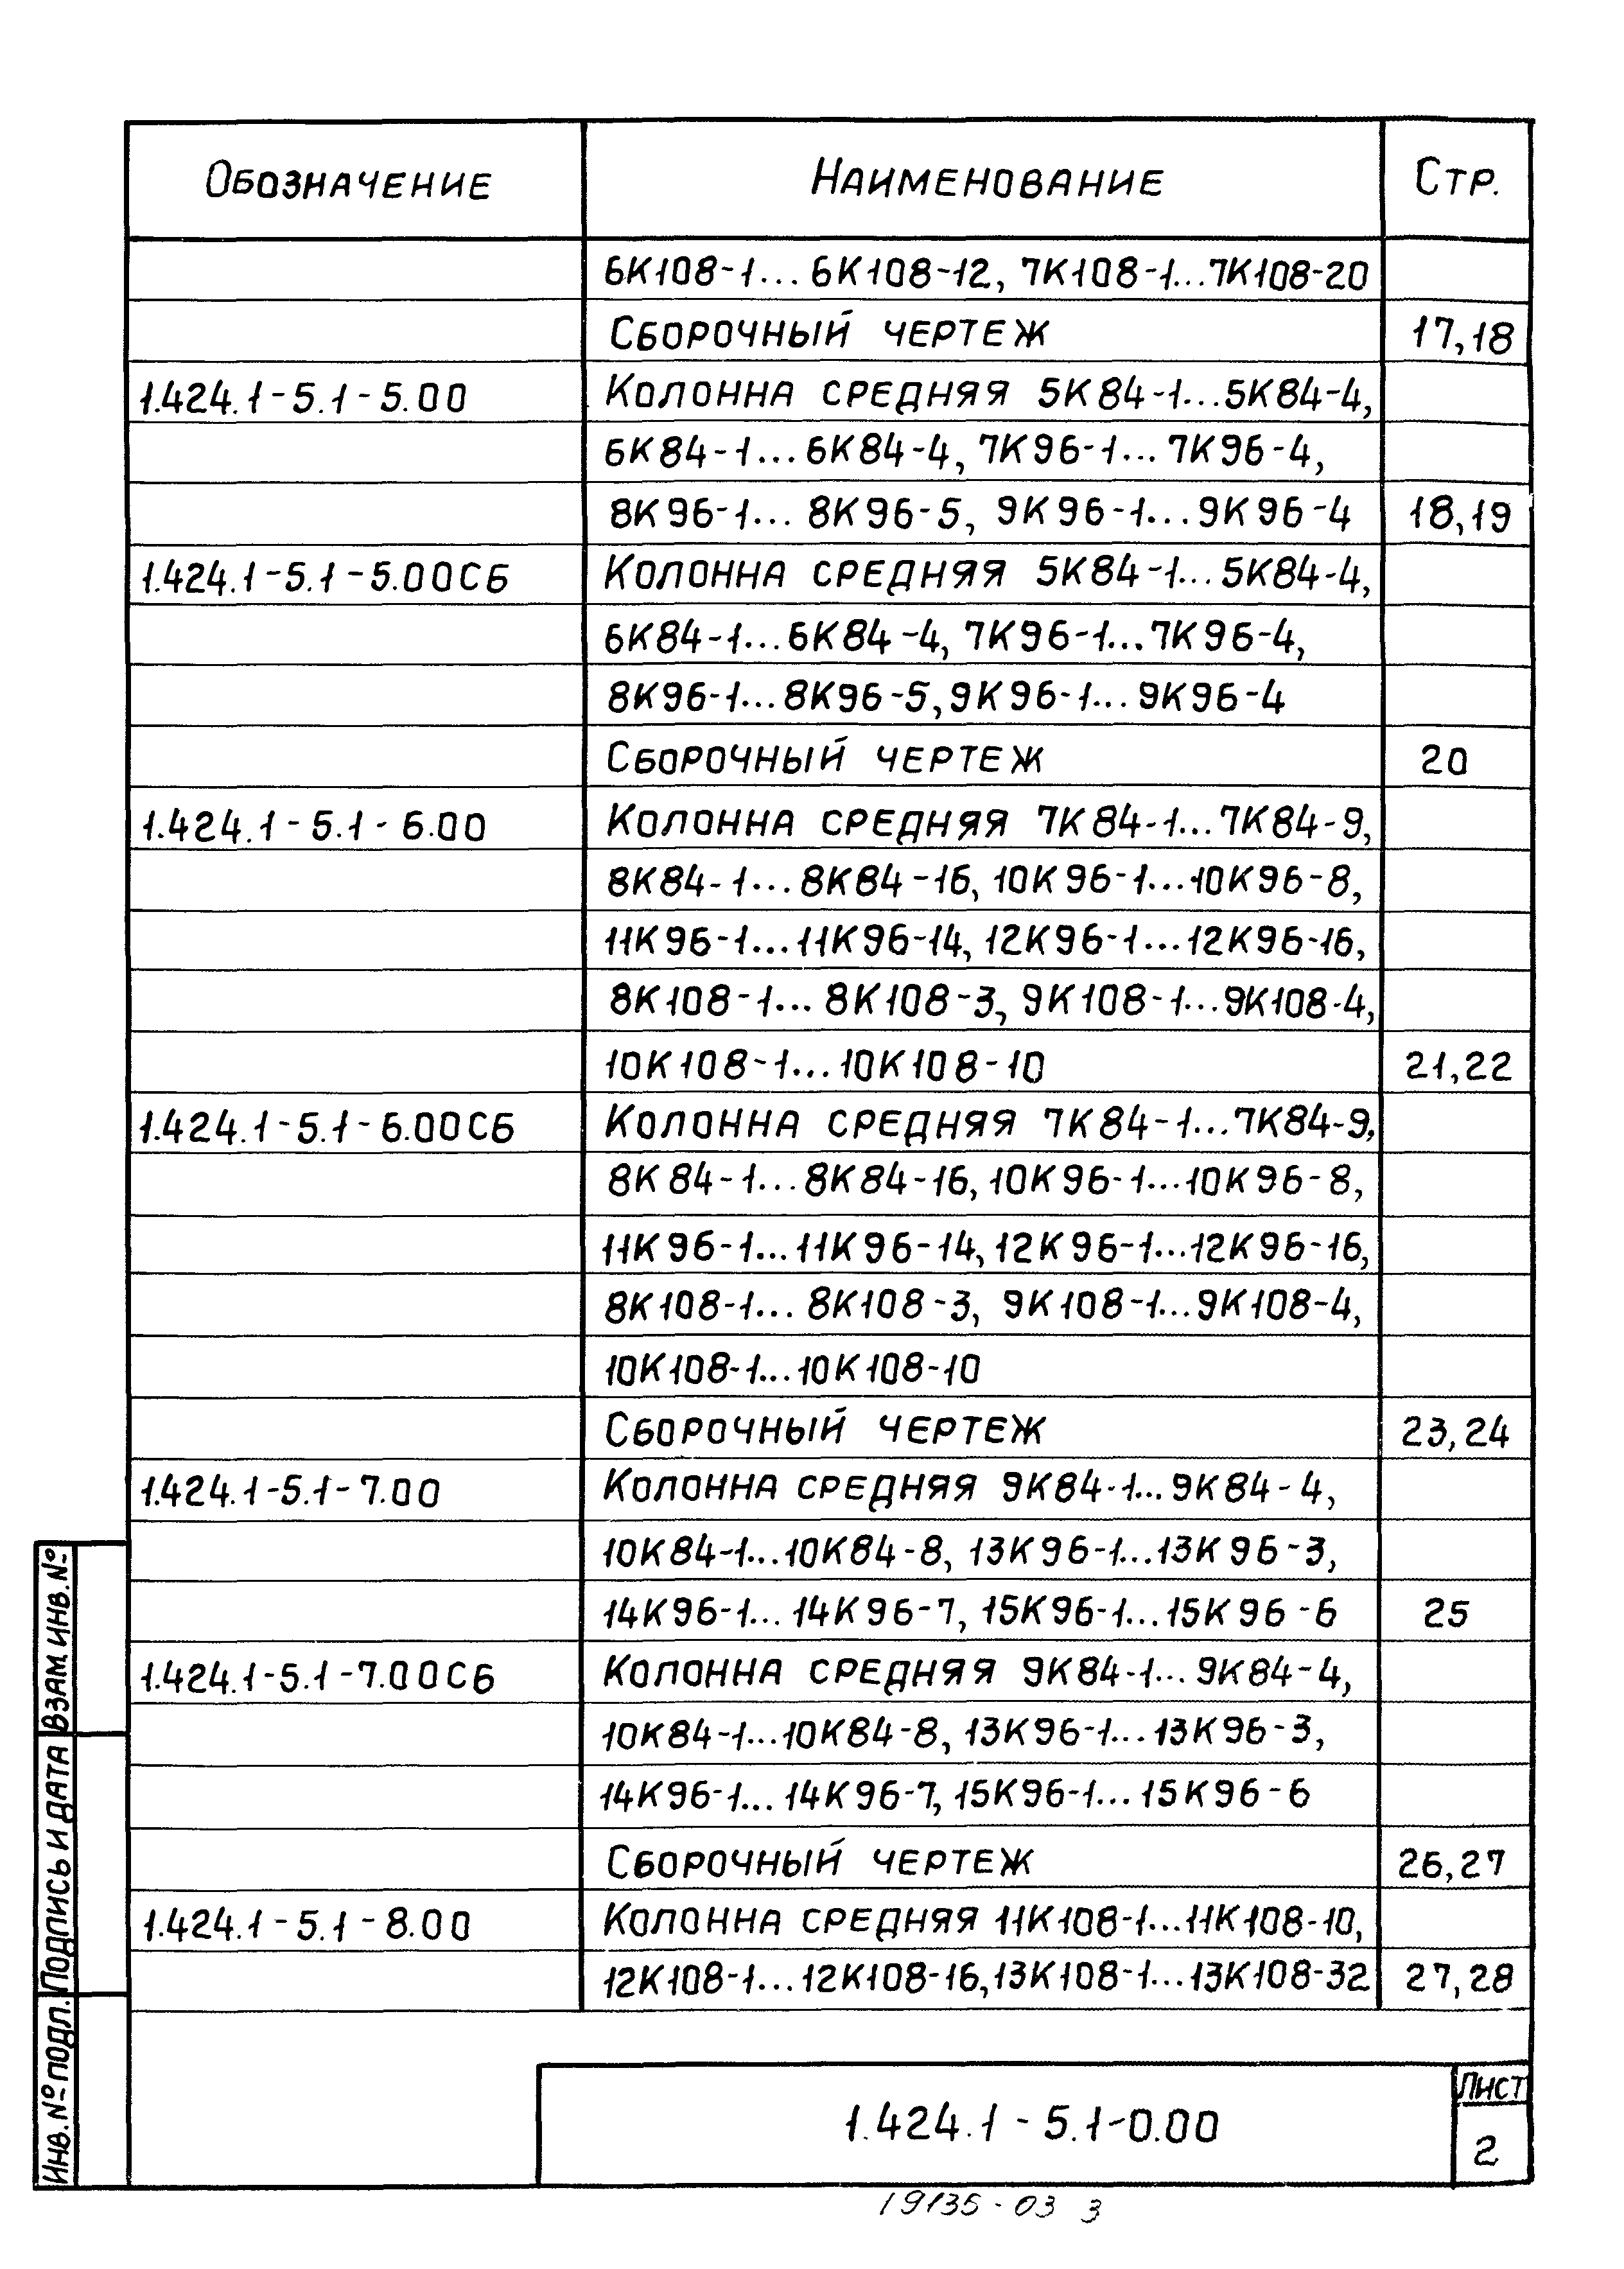 Обозначение Наименование Стр.
6К108-1...6К108-12, 7К108-1...7К108-20
Сборочный чертеж 17,18
1.424.1-5.1-5.00 Колонна средняя 5К84-1...5К84-4,
6К84-1...6К84-4, 7К96-1...7К96-4,
8К96-1...8К96-5, 9К96-1...9К96-4 18,19
1.424.1-5.1-5.00СБ Колонна средняя 5К84-1...5К84-4,
6К84-1...6К84-4, 7К96-1...7К96-4,
8К96-1...8К96-5, 9К96-1...9К96-4
Сборочный чертеж 20
1.424.1-5.1-6.00 Колонна средняя 7К84-1...7К84-9,
8К84-1...8К84-16, 10К96-1...10К96-8,
11К96-1...11К96-14, 12К96-1...12К96-16,
8К108-1...8К108-3, 9К108-1...9К108-4,
10К108-1...10К108-10 21,22
1.424.1-5.1-6.00СБ Колонна средняя 7К84-1...7К84-9,
8К84-1...8К84-16, 10К96-1...10К96-8,
11К96-1...11К96-14, 12К96-1...12К96-16,
8К108-1...8К108-3, 9К108-1...9К108-4,
10К108-1...10К108-10
Сборочный чертеж 23,24
1.424.1-5.1-7.00 Колонна средняя 9К84-1...9К84-4,
10К84-1...10К84-8, 13К96-1...13К96-3,
14К96-1...14К96-7, 15К96-1...15К96-6 25
1.424.1-5.1-7.00СБ Колонна средняя 9К84-1...9К84-4,
10К84-1...10К84-8, 13К96-1...13К96-3,
14К96-1...14К96-7, 15К96-1...15К96-6
Сборочный чертеж 26,27
1.424.1-5.1-8.00 Колонна средняя 11К108-1...11К108-10,
12К108-1...12К108-16, 13К108-1...13К108-32 27,28
Взам. инв. №
Подпись и дата
Инв. № подл.
1.424.1-5.1-0.00
Лист
2
19135-03 3